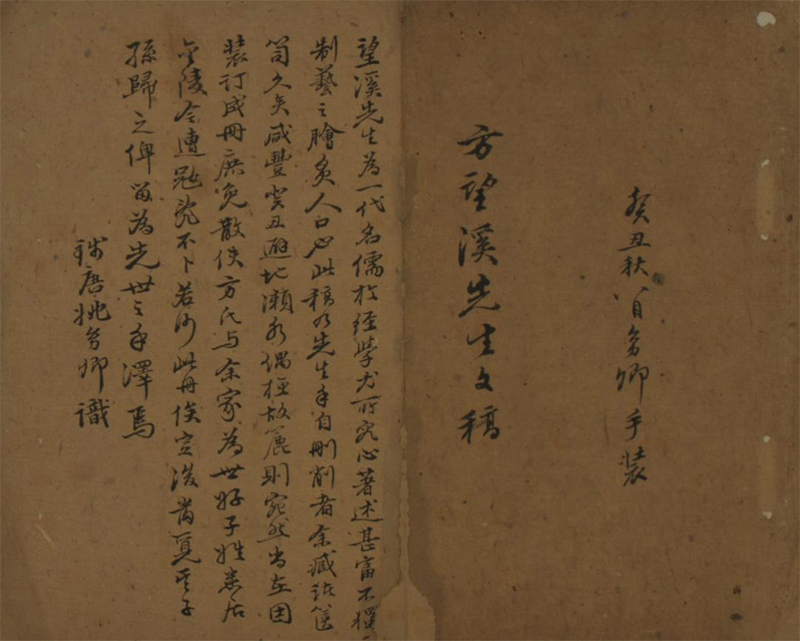 癸丑秋八月芻卿手裝
方望溪先生文稿
望溪先生為一代名儒於經學尤所究心著述甚富不獨
制藝之膾炙人口也此稿乃先生手自刪削者余藏諸篋
笥久矣咸豐癸丑避地瀨水偶檢故簏則宛然尚在因
裝訂成冊庶免散佚方氏與余家為世好子姓悉居
金陵今遭冠氛不卜若何此冊俟定後當覓其子
孫歸之俾留為先世之手澤焉
錢唐姚芻卿識